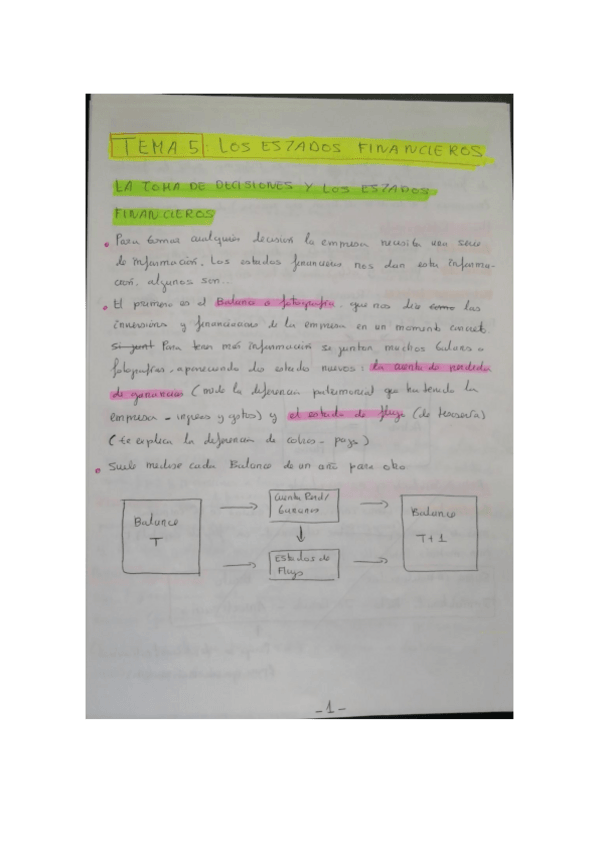 TEMA 5: LOS ESTADOS FINANCIEROS
LA TOMA DE DECISIONES Y LOS ESTADOS
FINANCIEROS
• Para tomar cualquier decisión la empresa necesita una serie
de información. Los estados financieros nos dan esta informa-
ción, algunos son...
• El primero es el Balance o fotografía, que nos dice como las
inversiones y financiaciones de la empresa en un momento concreto.
Para tener más información se juntan muchos balances o
fotografías, apareciendo dos estados nuevos: la cuenta de perdidas
de ganancias (mide la diferencia patrimonial que ha tenido la
empresa - ingresos y gastos) y el estado de flujo (de tesorería)
(te explica la diferencia de cobros - pagos)
• Suele medirse cada Balance de un año para otro
Balance
T
Cuenta Perd/
Ganancias
Estados de
Flujo
Balance
T+1
-1-